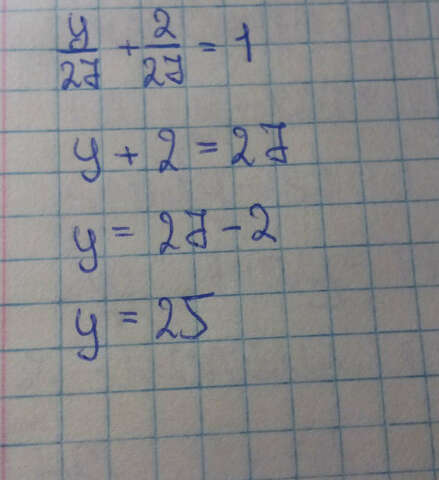 y/27 + 2/27 = 1
y + 2 = 27
y = 27 - 2
y = 25